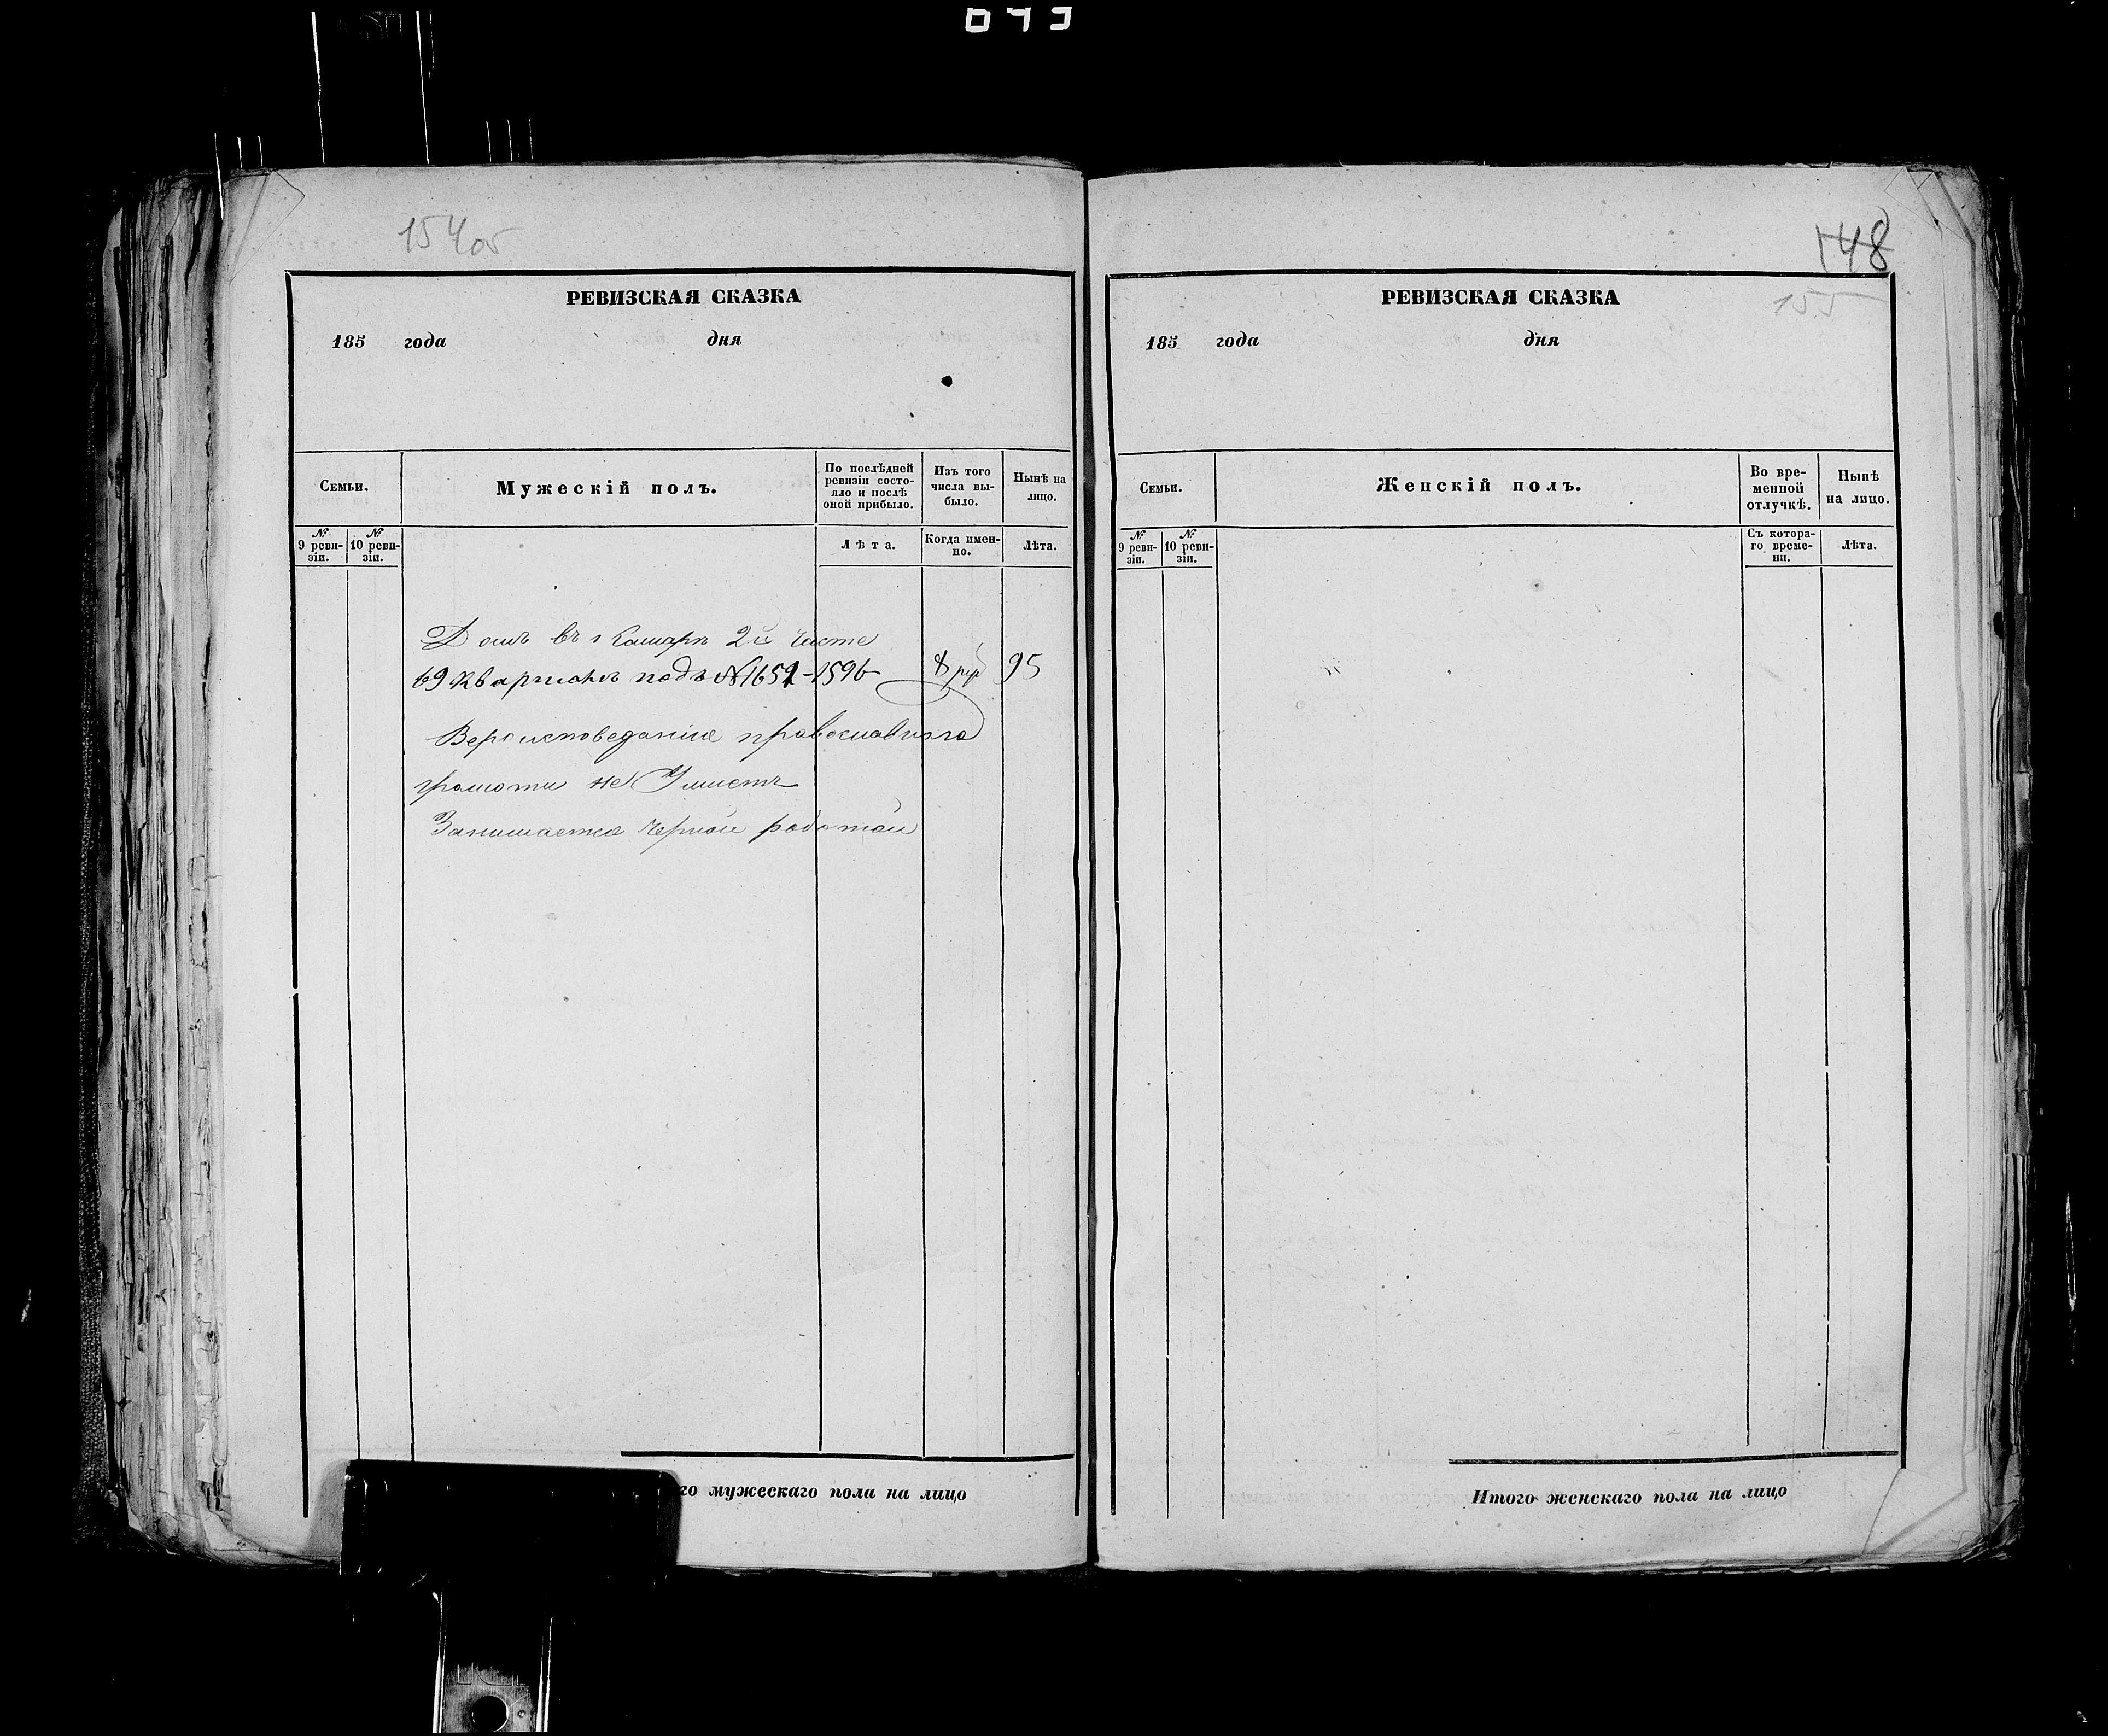 154об
РЕВИЗСКАЯ СКАЗКА
185 года дня
Семьи.
Мужескій полъ.
По послѣдней ревизіи состо-
яло и послѣ
оной прибыло.
Изъ того
числа вы-
было.
Нынѣ на
лицо.
№ 9 реви-
зіи.
№ 10 реви-
зіи.
Лѣта.
Когда имен-
но.
Лѣта.
Домъ въ 2й части
69 кварталъ подъ №1651-1596 8 руб 95
Вероисповеданія православнаго
грамоти не Умиетъ
Занимаетса Черной работой
го мужескаго пола на лицо
148
155
РЕВИЗСКАЯ СКАЗКА
185 года дня
Семьи.
Женскій полъ.
Во вре-
менной
отлучкѣ.
Нынѣ
на лицо.
№ 9 реви-
зіи.
№ 10 реви-
зіи.
Съ котора-
го време-
ни.
Лѣта.
Итого женскаго пола на лицо